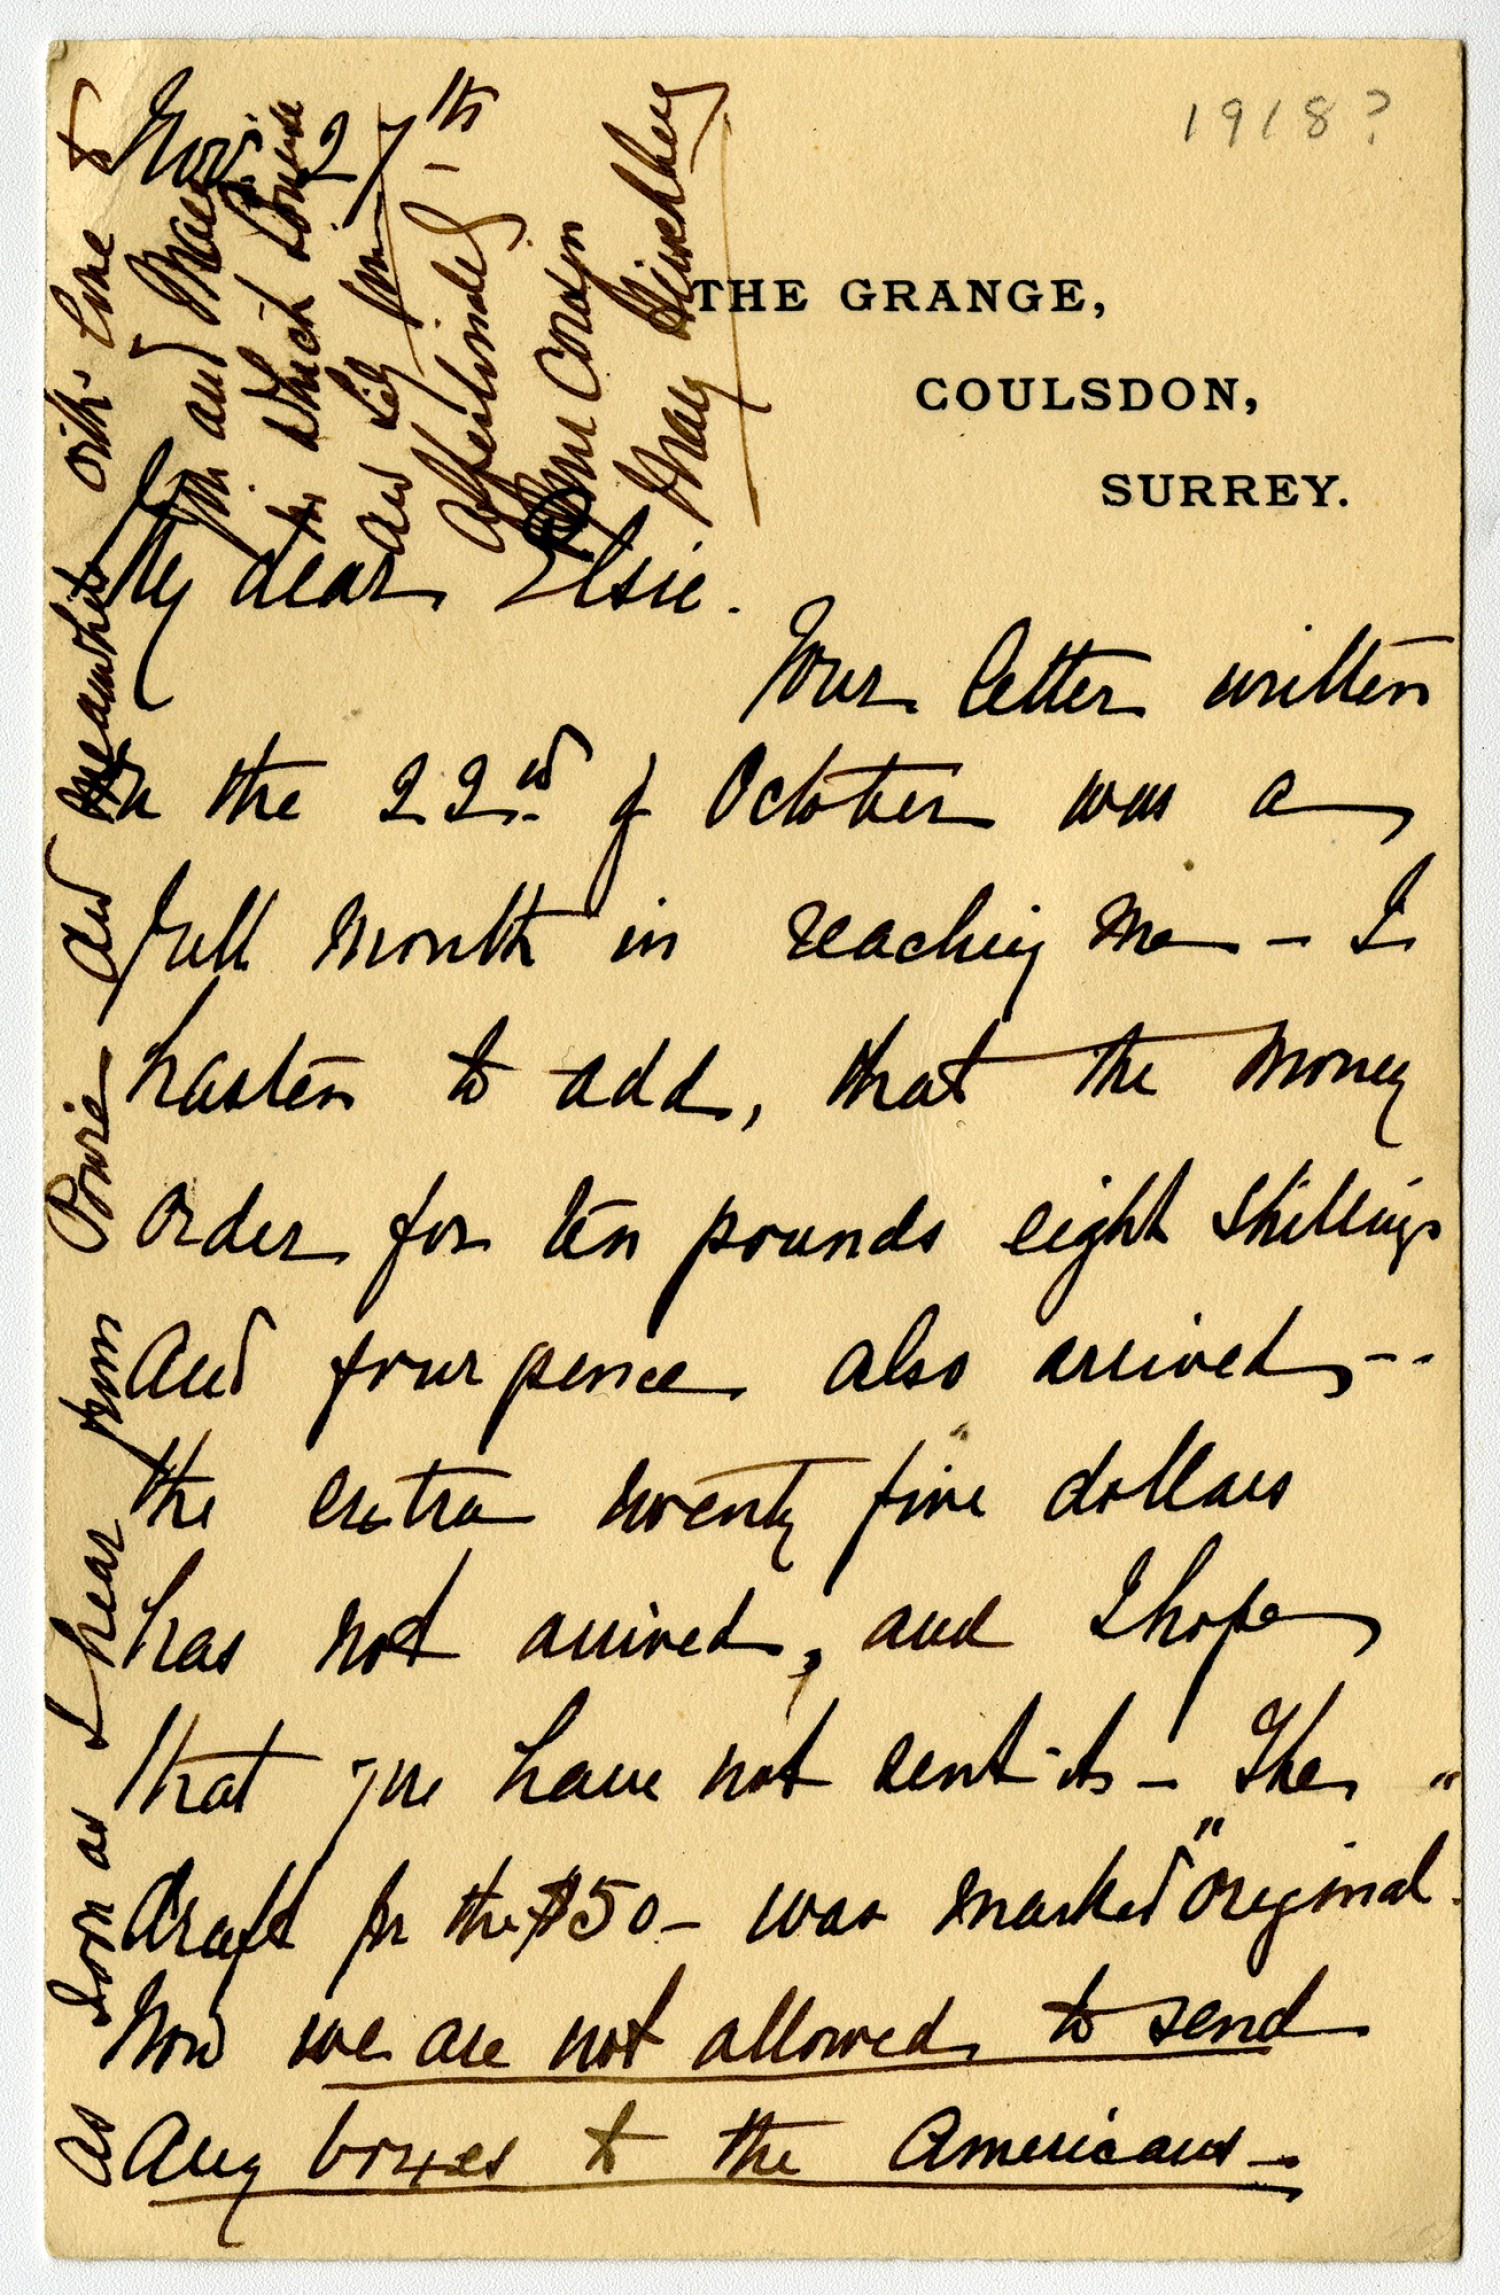 1918?
Nov. 27th
THE GRANGE,
COULSDON,
SURREY.
My dear Elsie.
Your letter written
on the 22nd of October was a
full month in reaching me - I
hasten to add, that the money
order for ten pounds eight shillings
and four pence also arrived --
the extra twenty five dollars
has not arrived, and I hope
that you have not sent it - The "
draft for the $50 - was marked "original.
Now we are not allowed to send
any boxes to the Americans -
as soon as I hear from Powie - and meanwhile with love to
Jim and
in which Louise
and Lily join -
Affectionately
Your Cousin
May Hinchley